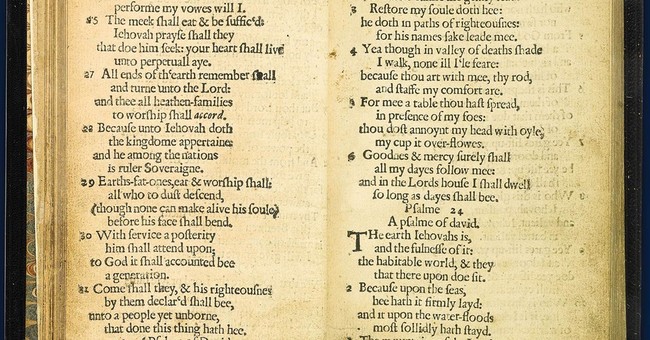 performe my vowes will I.
25 The meek ſhall eat & be ſuffic'd:
Iehovah prayſe ſhall they
that doe him ſeek: your heart ſhall live
unto perpetuall aye.
27 All ends of th'earth remember ſhall
and turne unto the Lord:
and thee all heathen-families
to worſhip ſhall accord.
28 Becauſe unto Iehovah doth
the kingdome appertaine:
and he among the nations
is ruler Soveraigne.
29 Earths-fat-ones, eat & worſhip ſhall:
all who to duſt deſcend,
(though none can make alive his ſoule)
before his face ſhall bend.
30 With ſervice a poſterity
him ſhall attend upon;
to God it ſhall accounted bee
a generation.
31 Come ſhall they, & his righteouſnes
by them declar'd ſhall bee,
unto a people yet unborne,
that done this thing hath hee.
3 Reſtore my ſoule doth hee:
he doth in paths of righteouſnes:
for his names ſake leade mee.
4 Yea though in valley of deaths ſhade
I walk, none ill I'le feare:
becauſe thou art with mee, thy rod,
and ſtaffe my comfort are.
5 For mee a table thou haſt ſpread,
in preſence of my foes:
thou doſt annoynt my head with oyle,
my cup it over-flowes.
6 Goodnes & mercy ſurely ſhall
all my dayes follow mee:
and in the Lords houſe I ſhall dwell
ſo long as dayes ſhall bee.
Pſalme 24
A pſalme of david.
THe earth Iehovahs is,
and the fulneſſe of it:
the habitable world, & they
that there upon doe ſit.
2 Becauſe upon the ſeas,
hee hath it firmly layd:
and it upon the water-floods
moſt ſollidly hath ſtayd.